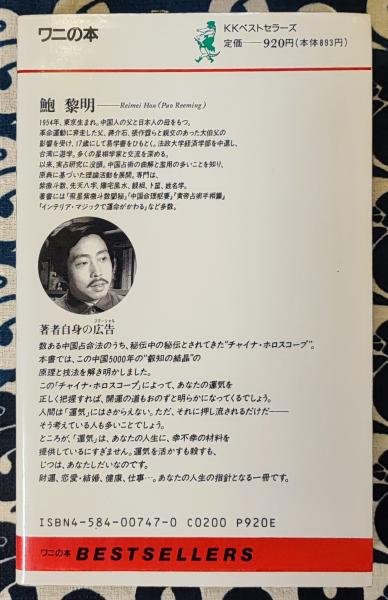 ワニの本
KKベストセラーズ
定価——920円(本体893円)
鮑 黎明——Reimei Hou (Pao Reeming)
1954年、東京生まれ。中国人の父と日本人の母をもつ。
革命運動に奔走した父、蔣介石、張作霖らと親交のあった大伯父の
影響を受け、17歳にして易学書をひもとく。法政大学経済学部を中退し、
台湾に遊学。多くの星相学家と交流を深める。
以来、実占研究に没頭。中国占術の曲解と濫用の多いことを知り、
原典に基づいた理論活動を展開。専門は、
紫微斗数、先天八字、陽宅風水、観相、卜筮、姓名学。
著書には「飛星紫微斗数闡秘」「中国命理枢要」「黄帝占術手相篇」
「インテリア・マジックで運命がかわる」など多数。
著者自身の広告
コマーシャル
数ある中国占命法のうち、秘伝中の秘伝とされてきた“チャイナ・ホロスコープ”。
本書では、この中国5000年の“叡知の結晶”の
原理と技法を解き明かしました。
この「チャイナ・ホロスコープ」によって、あなたの運気を
正しく把握すれば、開運の道もおのずと明らかになってくるでしょう。
人間は「運気」にはさからえない。ただ、それに押し流されるだけだ——
そう考えている人も多いことでしょう。
ところが、「運気」は、あなたの人生に、幸不幸の材料を
提供しているにすぎません。運気を活かすも殺すも、
じつは、あなたしだいなのです。
財運、恋愛・結婚、健康、仕事…。あなたの人生の指針となる一冊です。
ISBN4-584-00747-0 C0200 P920E
ワニの本 BESTSELLERS